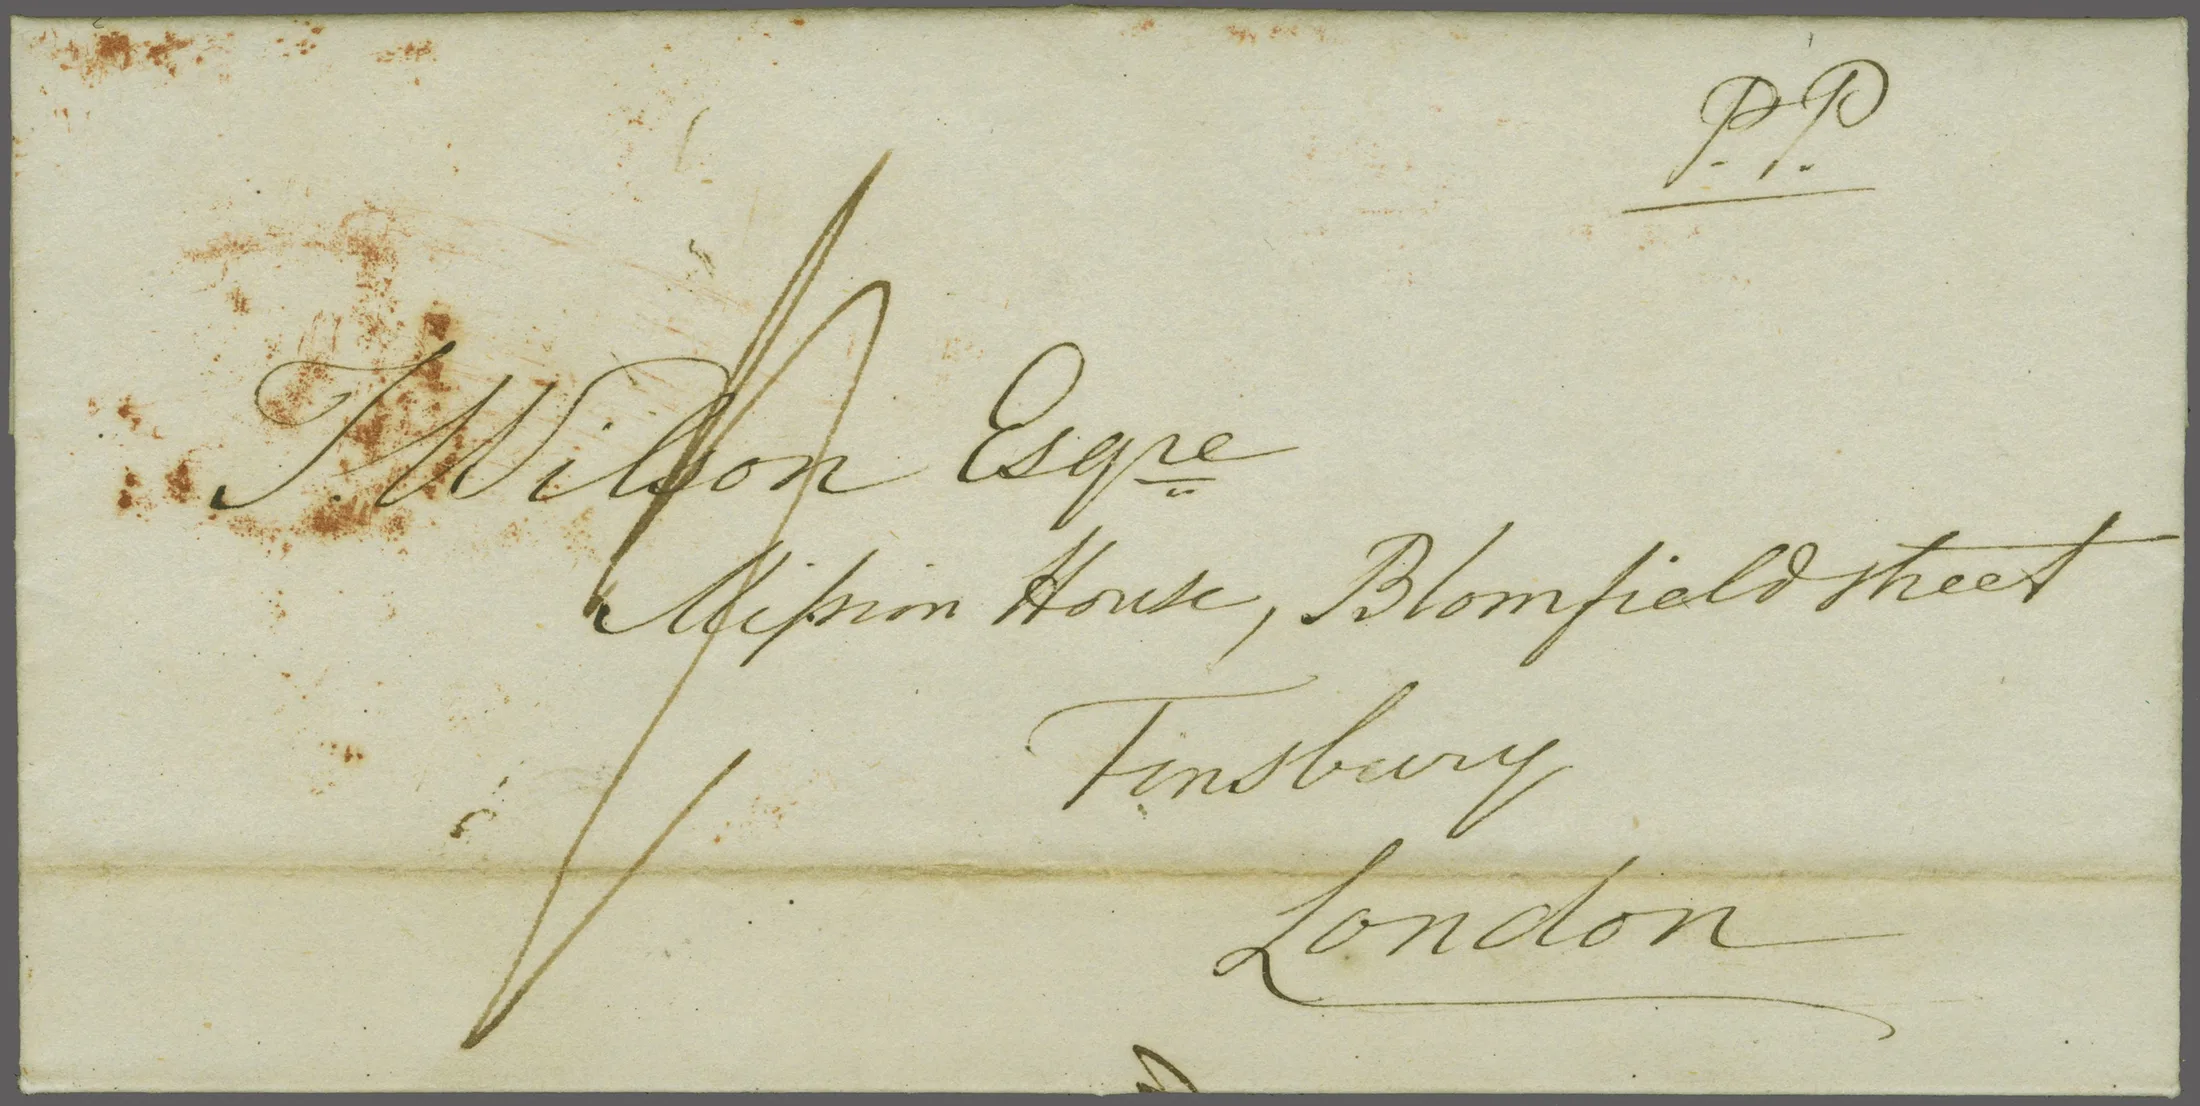 P.P.
T. Wilson Esqre
Mission House, Blomfield Street
Finsbury
London